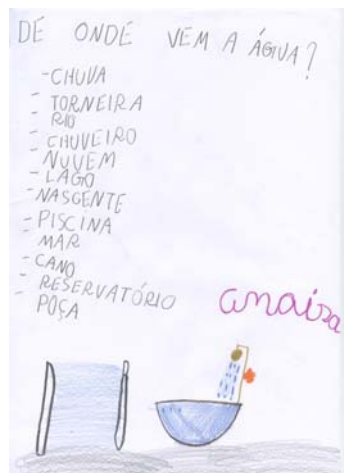 DE ONDE VEM A ÁGUA?
-CHUVA
- TORNEIRA
- RIO
- CHUVEIRO
- NUVEM
- LAGO
-NASCENTE
- PISCINA
- MAR
-CANO
- RESERVATÓRIO
- POÇA
anaisa